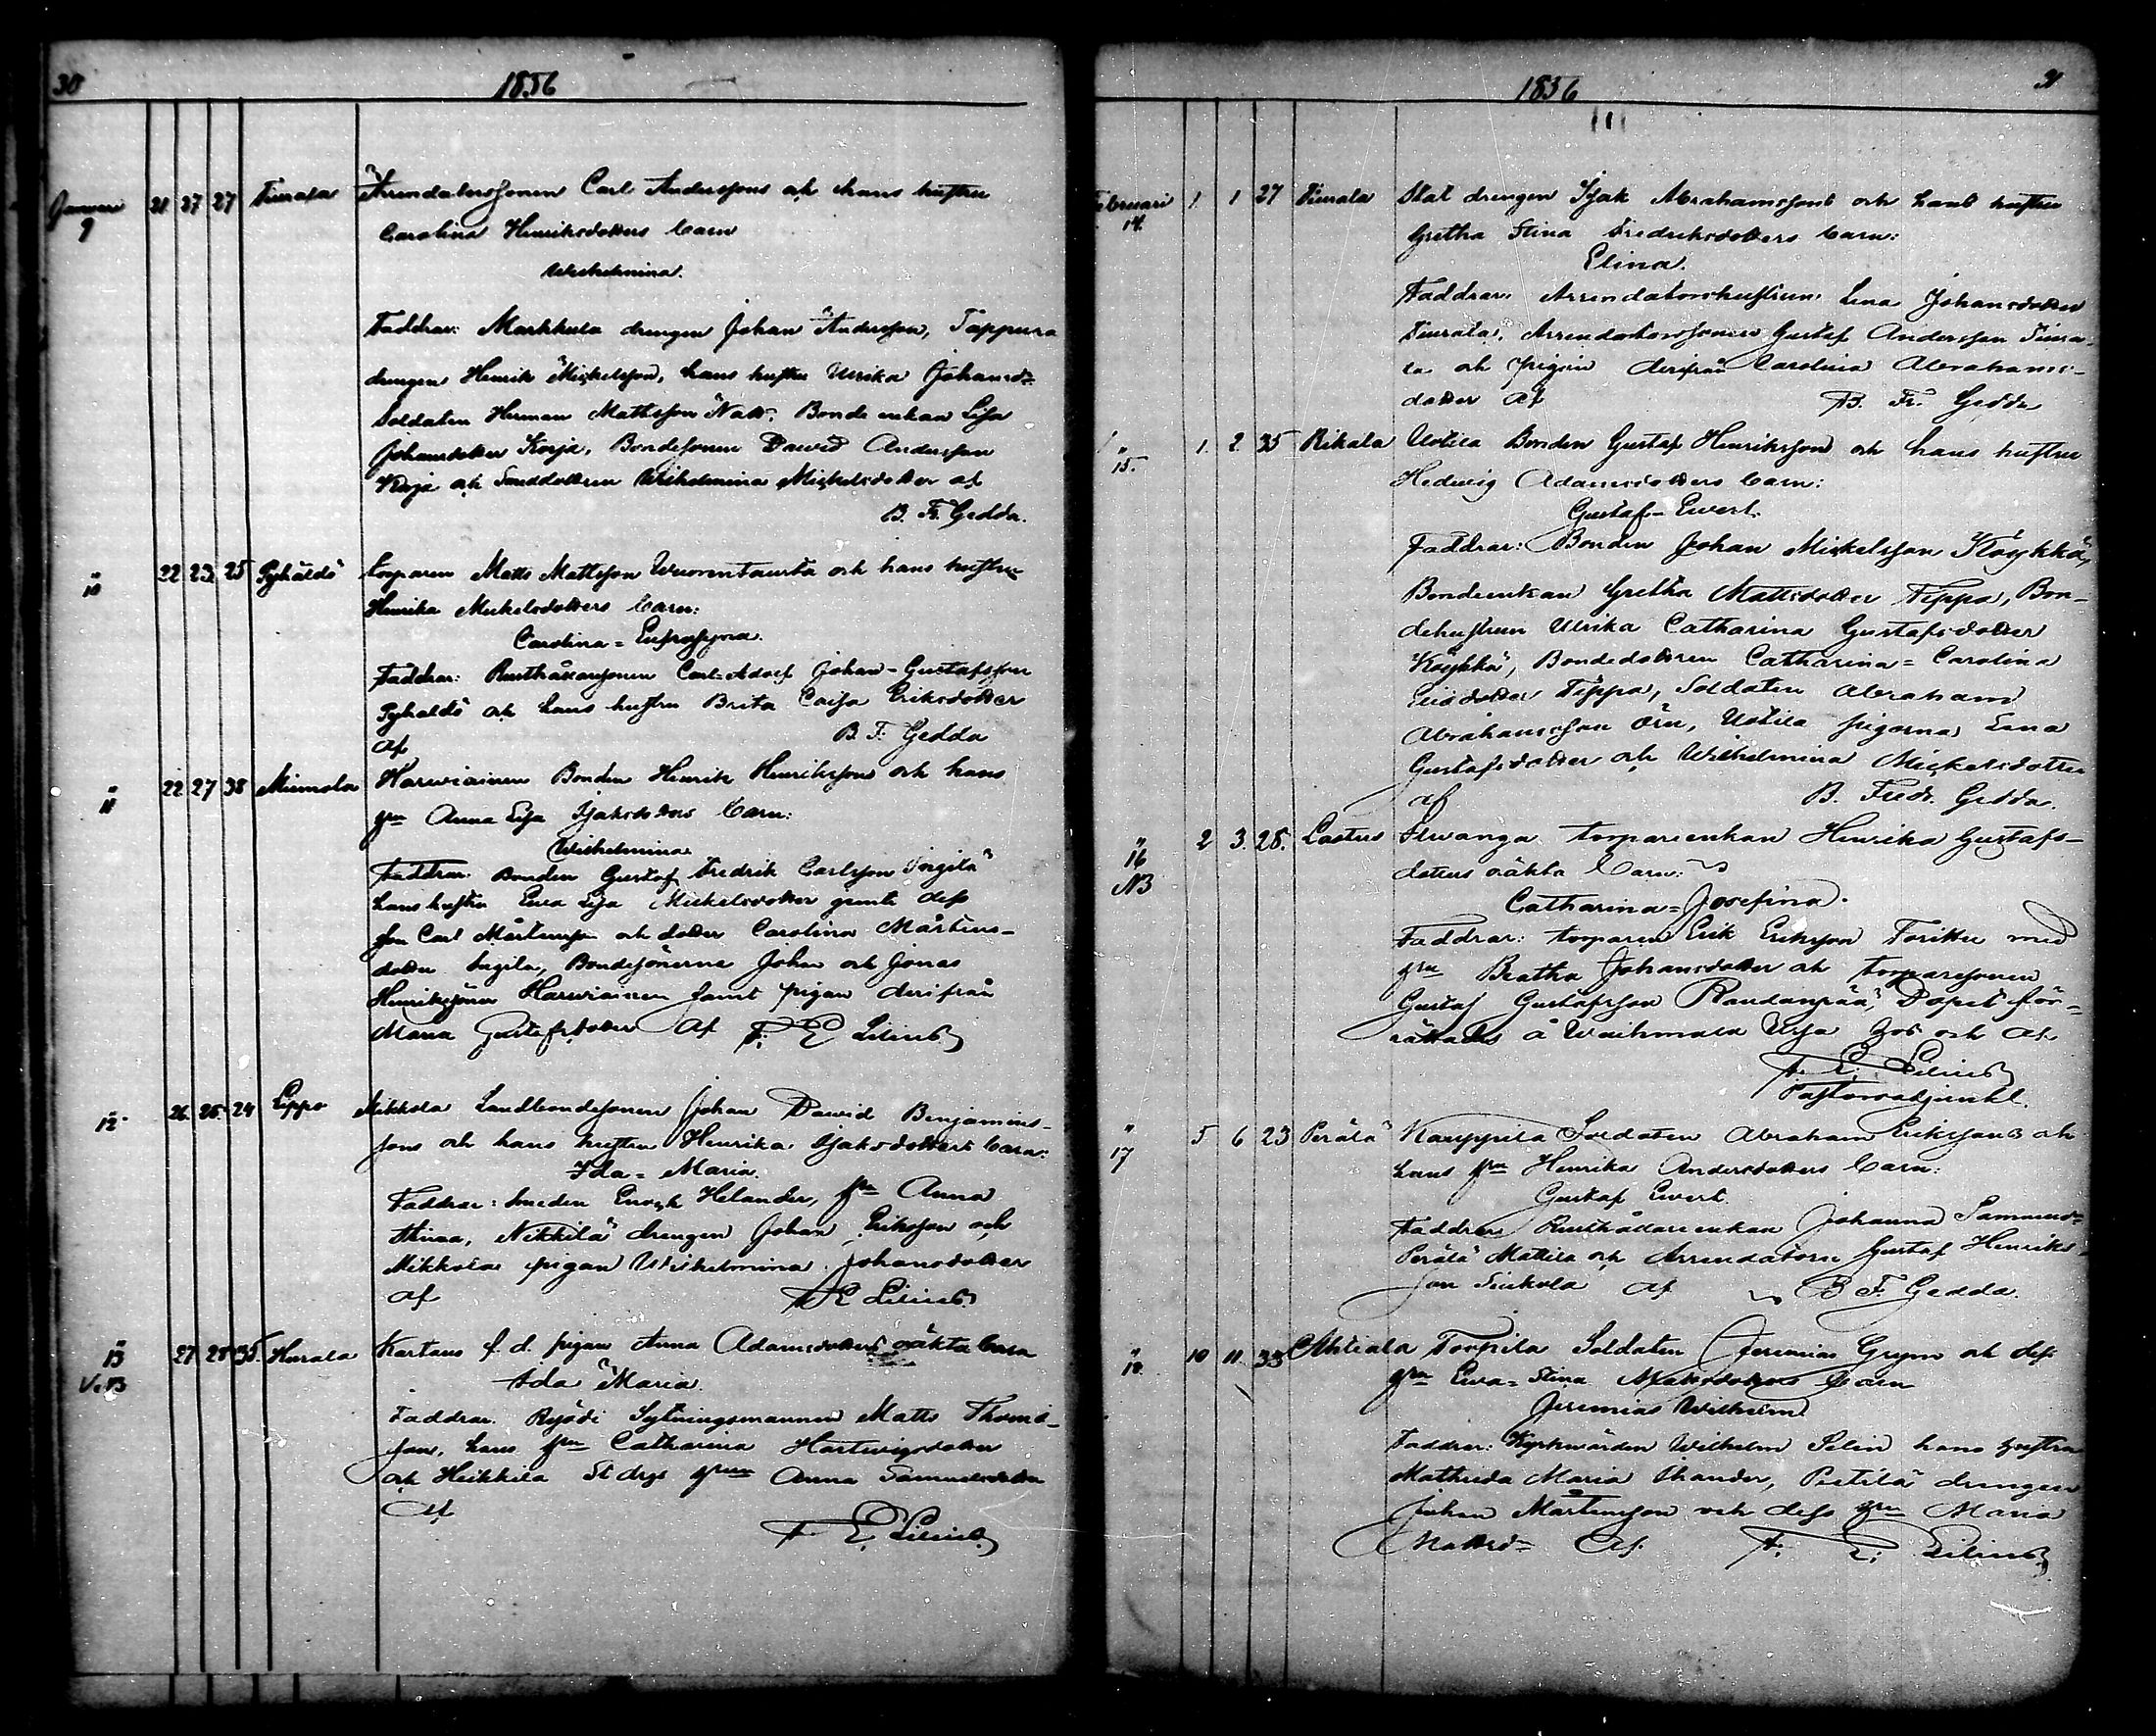 30
1856
Januari 21 27 27 Tiurala Arrendatorssonen Carl Anderssons och hans hustru
9
Carolina Henriksdotters barn
Wilhelmina.
Faddrar: Markkula drengen Johan Andersson, Tappura
drengen Henrik Mickelsson, hans hustru Ulrika Johansd=
Soldaten Herman Mattsson Natt. Bonde enkan Lisa
Johansdotter Korja, Bondesonen Dawid Andersson
Korja och Smeddottren Wilhelmina Mickelsdotter af
B. Fr. Gedda.
" 10 22 23 25 Pyhältö Torparen Matts Mattsson Wuorentausta och hans hustru
Henrika Mickelsdotters barn:
Carolina=Eufrosyna.
Faddrar: Rusthållaresonen Carl Adolf Johan-Gustafsson
Pyhältö och hans hustru Brita Caisa Eriksdotter
af B. F. Gedda
" 11 22 27 38 Miemola Harwiainen Bonden Henrik Henrikssons och hans
hru Anna Lisa Isaksdotters barn:
Wilhelmina
Faddrar: Bonden Gustaf Fredrik Carlsson Ingilä
hans hustru Ewa Lisa Mickelsdotter jemte dess
son Carl Mårtensson och dotter Carolina Mårtens-
dotter Ingilä, Bondesönerna Johan och Jonas
Henrikssöner Harwiainen samt pigan derifrån
Maria Gustafsdotter af F. E. Lilius
" 12 26 26 24 Seppo Mikkola Landbondesonen Johan Dawid Benjamins-
sons och hans hustru Henrika Isaksdotters barn:
Ida=Maria.
Faddrar: Smeden Enogh Helander, hru Anna
Stina, Nikkilä drengen Johan Eriksson och
Mikkola pigan Wilhelmina Johansdotter
af F E Lilius
" 13 27 28 35. Hurala Kartano f. d. pigan Anna Adamsdotters oäkta barn
NB
Ida Maria.
Faddrar. Rejödi Sytningsmannen Matts Thoms-
son, hans hru Catharina Hartwigsdotter
och Heikkilä St drgs hrun Anna Samuelsdotter
Af
F E. Lilius
1856
31
Februari 1. 1 27 Tiurala Stat drengen Isak Abrahamssons och hans hustru
14.
Gretha Stina Fredriksdotters barn:
Elina.
Faddrar: Arrendatorshustrun Lena Johansdotter
Tiurala, Arrendatorssonen Gustaf Andersson Tiura-
la och pigan derifrån Carolina Abrahams-
dotter Af B. Fr. Gedda
" 15. 1. 2. 35 Rikala Uotila Bonden Gustaf Henrikssons och hans hustru
Hedwig Adamsdotters barn:
Gustaf=Ewert.
Faddrar: Bonden Johan Mickelsson Köykkä,
Bondeenkan Gretha Mattsdotter Teppo, Bon-
dehustrun Ulrika Catharina Gustafsdotter
Köykkä, Bondedottren Catharina=Carolina
Eliædotter Teppo, Soldaten Abraham
Abrahamsson Örn, Uotila pigorna Lena
Gustafsdotter och Wilhelmina Mickelsdotter
af B. Fredr. Gedda.
" 16 NB 2 3. 28. Lastus Flwanga torpareenkan Henrika Gustafs-
dotters oäkta barn:
Catharina=Josefina.
Faddrar: torparen Erik Eriksson Foritte med
hru Beatha Johansdotter och torparesonen
Gustaf Gustafsson Raudanpää, Dopet för-
rättades å Waihmala hos och af
F. E. Lilius
Pastorsadjunkt.
" 17 5 6 23 Perälä Kauppila Soldaten Abraham Erikssons och
hans hru Henrika Andersdotters barn:
Gustaf Ewert
Faddrar Rusthållareenkan Johanna Samuelsd=
Perälä Mattila och Arrendatorn Gustaf Henriks-
son Siukola af B F. Gedda.
" 18. 10 11. 33 Ahtiala Torpila Soldaten Jeremias Grym och dess
hru Ewa=Stina Isaksdotters barn
Jeremias Wilhelm
Faddrar: Kyrkwärden Wilhelm Selin hans hustru
Mathilda Maria Thander, Pietilä drengen
Johan Mårtensson och dess hru Maria
Mattsd= Af. F. E. Lilius